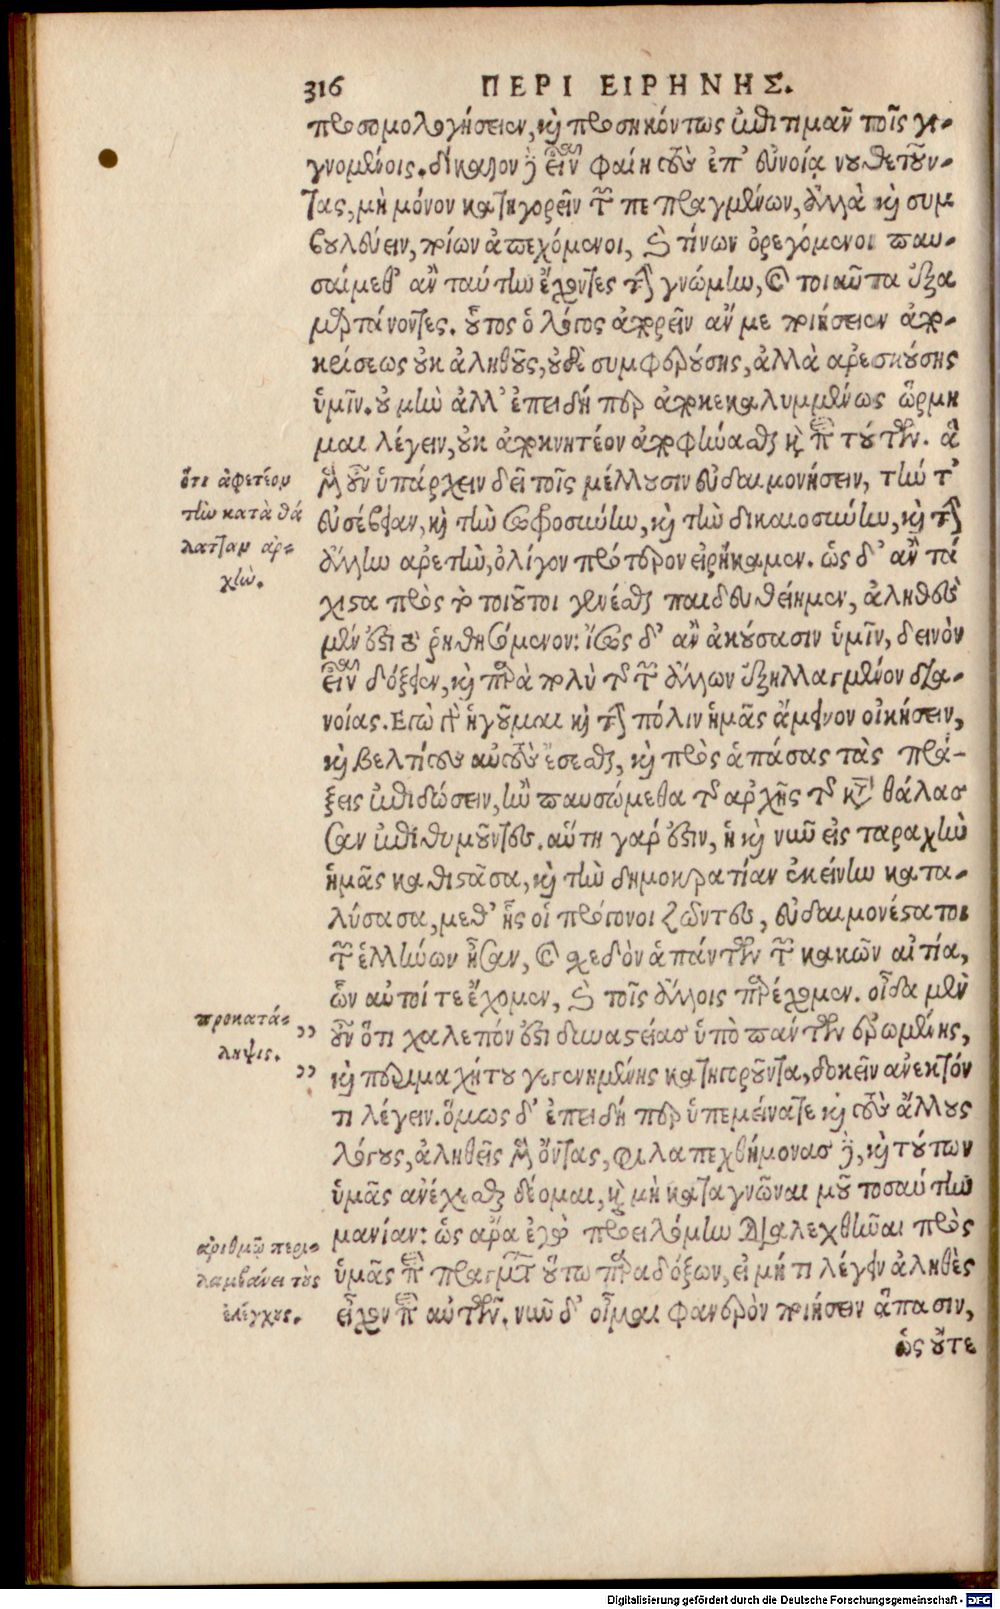 316 ΠΕΡΙ ΕΙΡΗΝΗΣ.
προσομολογήσειεν, καὶ προσηκόντως ἐπιτιμᾶν τοῖς γι-
γνομένοις. δίκαιον δ' εἶναι φαίη τοὺς ἐπ' εὐνοίᾳ νουθετοῦν-
τας, μὴ μόνον κατηγορεῖν τῶν πεπραγμένων, ἀλλὰ καὶ συμ
βουλεύειν, τίνων ἀπεχόμενοι, καὶ τίνων ὀρεγόμενοι παυ-
σαίμεθ' ἂν ταύτην ἔχοντες τὴν γνώμην, καὶ τοιαῦτα ἐξα
μαρτάνοντες. οὗτος ὁ λόγος ἀπορεῖν ἄν με ποιήσειεν ἀπο-
κρίσεως οὐκ ἀληθοῦς, οὐδὲ συμφερούσης, ἀλλὰ ἀρεσκούσης
ὑμῖν. οὐ μὴν ἀλλ' ἐπειδή περ ἀποκεκαλυμμένως ὥρμη
μαι λέγειν, οὐκ ἀποκνητέον ἀποφήνασθαι καὶ περὶ τούτων. ἃ
μὲν οὖν ὑπάρχειν δεῖ τοῖς μέλλουσιν εὐδαιμονήσειν, τήν τ'
εὐσέβειαν, καὶ τὴν σωφροσύνην, καὶ τὴν δικαιοσύνην, καὶ τὴν
ἄλλην ἀρετὴν, ὀλίγον πρότερον εἰρήκαμεν. ὡς δ' ἂν τά
χιστα πρὸς τὸ τοιοῦτοι γενέσθαι παιδευθείημεν, ἀληθὲς
μέν ἐστι τὸ ῥηθησόμενον: ἴσως δ' ἂν ἀκούσασιν ὑμῖν, δεινὸν
εἶναι δόξειεν, καὶ παρὰ πολὺ τῆς τῶν ἄλλων ἐξηλλαγμένον δια-
νοίας. Ἐγὼ γὰρ ἡγοῦμαι καὶ τὴν πόλιν ἡμᾶς ἄμεινον οἰκήσειν,
καὶ βελτίους αὐτοὺς ἔσεσθαι, καὶ πρὸς ἁπάσας τὰς πρά-
ξεις ἐπιδώσειν, ἢν παυσώμεθα τῆς ἀρχῆς τῆς κατὰ θάλασ
σαν ἐπιθυμοῦντες. αὕτη γάρ ἐστιν, ἡ καὶ νῦν εἰς ταραχὴν
ἡμᾶς καθιστᾶσα, καὶ τὴν δημοκρατίαν ἐκείνην κατα-
λύσασα, μεθ' ἧς οἱ πρόγονοι ζῶντες, εὐδαιμονέστατοι
τῶν ἑλλήνων ἦσαν, καὶ σχεδὸν ἁπάντων τῶν κακῶν αἰτία,
ὧν αὐτοί τε ἔχομεν, καὶ τοῖς ἄλλοις παρέχομεν. οἶδα μὲν
οὖν ὅτι χαλεπόν ἐστι δυναστείας ὑπὸ πάντων ἐρωμένης,
καὶ περιμαχήτου γεγενημένης κατηγοροῦντα, δοκεῖν ἀνεκτόν
τι λέγειν. ὅμως δ' ἐπειδή περ ὑπεμείνατε καὶ τοὺς ἄλλους
λόγους, ἀληθεῖς μὲν ὄντας, φιλαπεχθήμονας δὲ, καὶ τούτων
ὑμᾶς ἀνέχεσθαι δέομαι, καὶ μὴ καταγνῶναι μοῦ τοσαύτην
μανίαν: ὡς ἄρα ἐγὼ προειλόμην διαλεχθῆναι πρὸς
ὑμᾶς περὶ πραγμάτων οὕτω παραδόξων, εἰ μή τι λέγειν ἀληθὲς
εἶχον περὶ αὐτῶν. νῦν δ' οἶμαι φανερὸν ποιήσειν ἅπασιν,
ὡς οὔτε
ὅτι ἀφετέον
τὴν κατὰ θά
λατταν ἀρ-
χὴν.
προκατά-
ληψις.
ἀριθμῷ περι-
λαμβάνει τοὺς
ἐλέγχους.
Digitalisierung gefördert durch die Deutsche Forschungsgemeinschaft - DFG